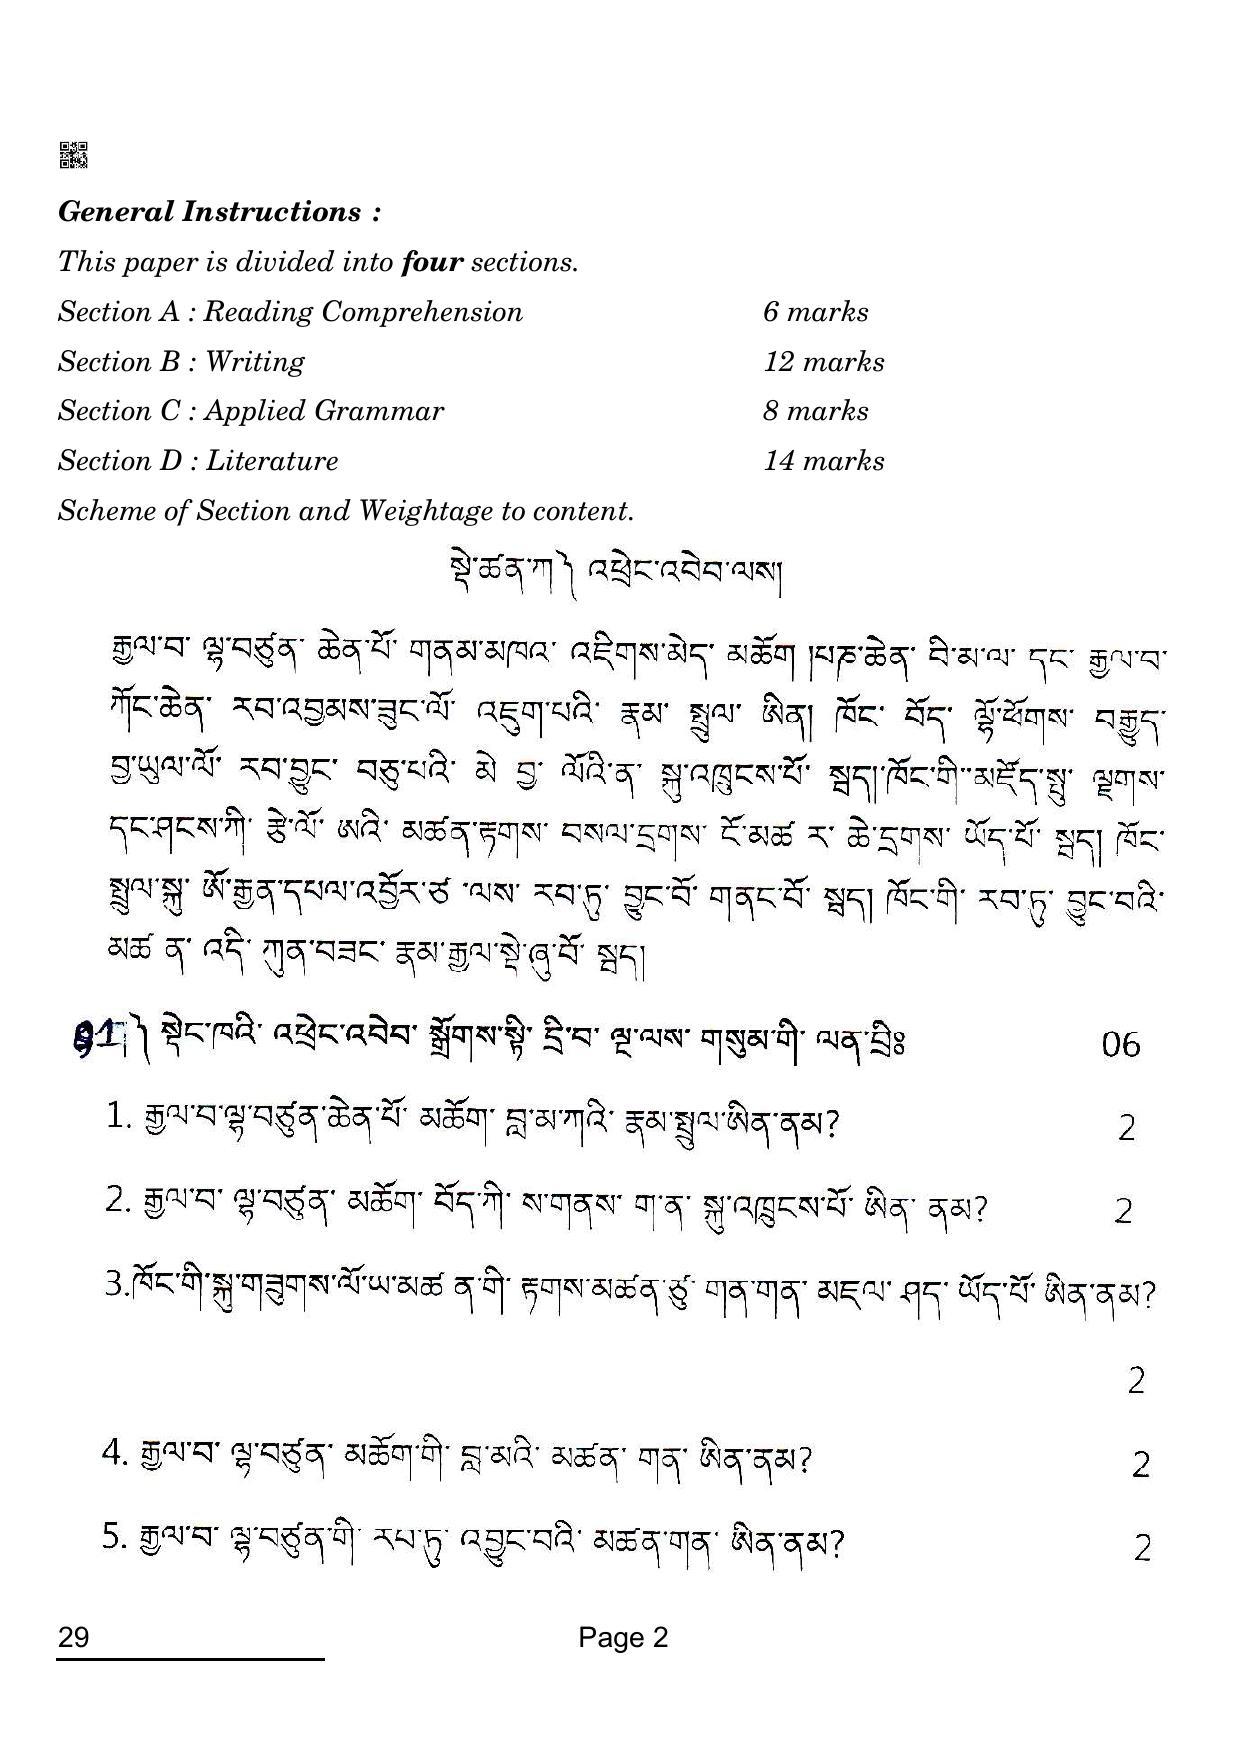 General Instructions :
This paper is divided into four sections.
Section A : Reading Comprehension 6 marks
Section B : Writing 12 marks
Section C : Applied Grammar 8 marks
Section D : Literature 14 marks
Scheme of Section and Weightage to content.
སྡེ་ཚན་ཀ༽ འཕྲེང་འབེབ་ལས།
རྒྱལ་བ་ ལྷ་བཙུན་ ཆེན་པོ་ གནམ་མཁའ་ འཇིགས་མེད་ མཆོག །པཎ་ཆེན་ བི་མ་ལ་ དང་ རྒྱལ་བ་
ཀོང་ཆེན་ རབ་འབྱམས་ཟུང་ལོ་ འཇུག་པའི་ རྣམ་ སྤྲུལ་ ཨིན། ཁོང་ བོད་ ལྷོ་ཕོགས་ བརྒྱུད་
བྱ་ཡུལ་ལོ་ རབ་བྱུང་ བཅུ་པའི་ མེ་ བྱ་ ལོའི་ན་ སྐུ་འཁྲུངས་པོ་ སྦད།་ཁོང་གི་་མཛོད་སྤུ་ ལྗགས་
དང་ཤངས་ཀི་ རྩེ་ལོ་ ཨའི་ མཚན་རྟགས་ བསལ་དྲགས་ ངོ་མཚ ར་ ཆེ་དྲགས་ ཡོད་པོ་ སྦད། ཁོང་
སྤྲུལ་སྐུ་ ཨོ་རྒྱན་དཔལ་འབྱོར་ཙ ་ལས་ རབ་ཏུ་ བྱུང་བོ་ གནང་བོ་ སྦད། ཁོང་གི་ རབ་ཏུ་ བྱུང་བའི་
མཚ ན་ འདི་ ཀུན་བཟང་ རྣམ་རྒྱལ་སྡེ་ཞུ་བོ་ སྦད།
༽ སྡེང་ཁའི་ འཕྲེང་འབེབ་ སྒྲོགས་སྟི་ དྲི་བ་ ལྔ་ལས་ གསུམ་གི་ ལན་བྲིཿ 06
1. རྒྱལ་བ་ལྷ་བཙུན་ཆེན་པོ་ མཆོག་ བླ་མ་ཀའི་ རྣམ་སྤྲུལ་ཨིན་ནམ? 2
2. རྒྱལ་བ་ ལྷ་བཙུན་ མཆོག་ བོད་ཀི་ ས་གནས་ ག་ན་ སྐུ་འཁྲུངས་པོ་ ཨིན་ ནམ? 2
3.ཁོང་གི་སྐུ་གཟུགས་ལོ་ཡ་མཚ ན་གི་ རྟགས་མཚན་ཙུ་ གན་གན་ མཇལ་ ཤད་ ཡོད་པོ་ ཨིན་ནམ?
2
4. རྒྱལ་བ་ ལྷ་བཙུན་ མཆོག་གི་ བླ་མའི་ མཚན་ གན་ ཨིན་ནམ? 2
5. རྒྱལ་བ་ ལྷ་བཙུན་གི་ རཔ་ཏུ་ འབྱུང་བའི་ མཚན་གན་ ཨིན་ནམ? 2
29 Page 2